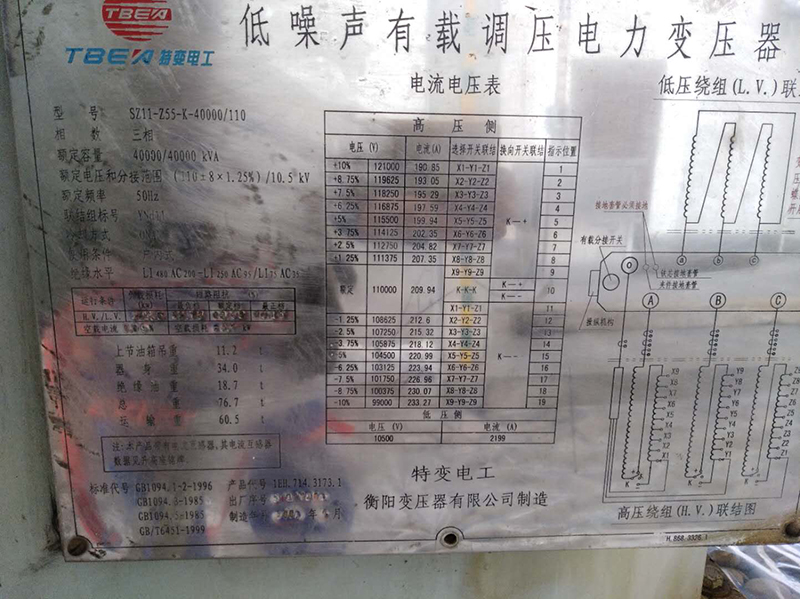 TBEA
TBEA 特变电工
低噪声有载调压电力变压器
电流电压表
低压绕组(L.V.)联
型 号: SZ11-Z55-K-40000/110
相 数: 三相
额定容量 40000/40000 kVA
额定电压和分接范围 (110±8×1.25%)/10.5 kV
额定频率 50Hz
联结组标号
使用条件 户外式
绝缘水平 LI 480 AC 200-LI 250 AC 95/LI 75 AC 35
运行条件
H.V./L.V.
空载电流
空载损耗
上节油箱吊重 11.2 t
器身重 34.0 t
绝缘油重 18.7 t
总重 76.7 t
运输重 60.5 t
标准代号 GB1094.1-2-1996
GB1094.3-1985
GB1094.5-1985
GB/T6451-1999
产品代号 1EH.714.3173.1
出厂序号
制造年月
高压侧
电压(V) 电流(A) 选择开关联结 换向开关联结 指示位置
+10% 121000 190.85 X1-Y1-Z1 1
+8.75% 119625 193.05 X2-Y2-Z2 2
+7.5% 118250 195.29 X3-Y3-Z3 3
+6.25% 116875 197.59 X4-Y4-Z4 4
+5% 115500 199.94 X5-Y5-Z5 K—+ 5
+3.75% 114125 202.35 X6-Y6-Z6 6
+2.5% 112750 204.82 X7-Y7-Z7 7
+1.25% 111375 207.35 X8-Y8-Z8 8
X9-Y9-Z9 9
额定 110000 209.94 K-K-K K—+ K—- 10
X1-Y1-Z1 11
-1.25% 108625 212.6 X2-Y2-Z2 12
-2.5% 107250 215.32 X3-Y3-Z3 13
-3.75% 105875 218.12 X4-Y4-Z4 14
-5% 104500 220.99 X5-Y5-Z5 K—- 15
-6.25% 103125 223.94 X6-Y6-Z6 16
-7.5% 101750 226.96 X7-Y7-Z7 17
-8.75% 100375 230.07 X8-Y8-Z8 18
-10% 99000 233.27 X9-Y9-Z9 19
低压侧
电压(V) 电流(A)
10500 2199
特变电工
衡阳变压器有限公司制造
接地套管必须接地
有载分接开关
铁芯接地套管
夹件接地套管
操纵机构
a b c
O A B C
X9 X8 X7 X6 X5 X4 X3 X2 X1
Y9 Y8 Y7 Y6 Y5 Y4 Y3 Y2 Y1
K K K
高压绕组(H.V.)联结图